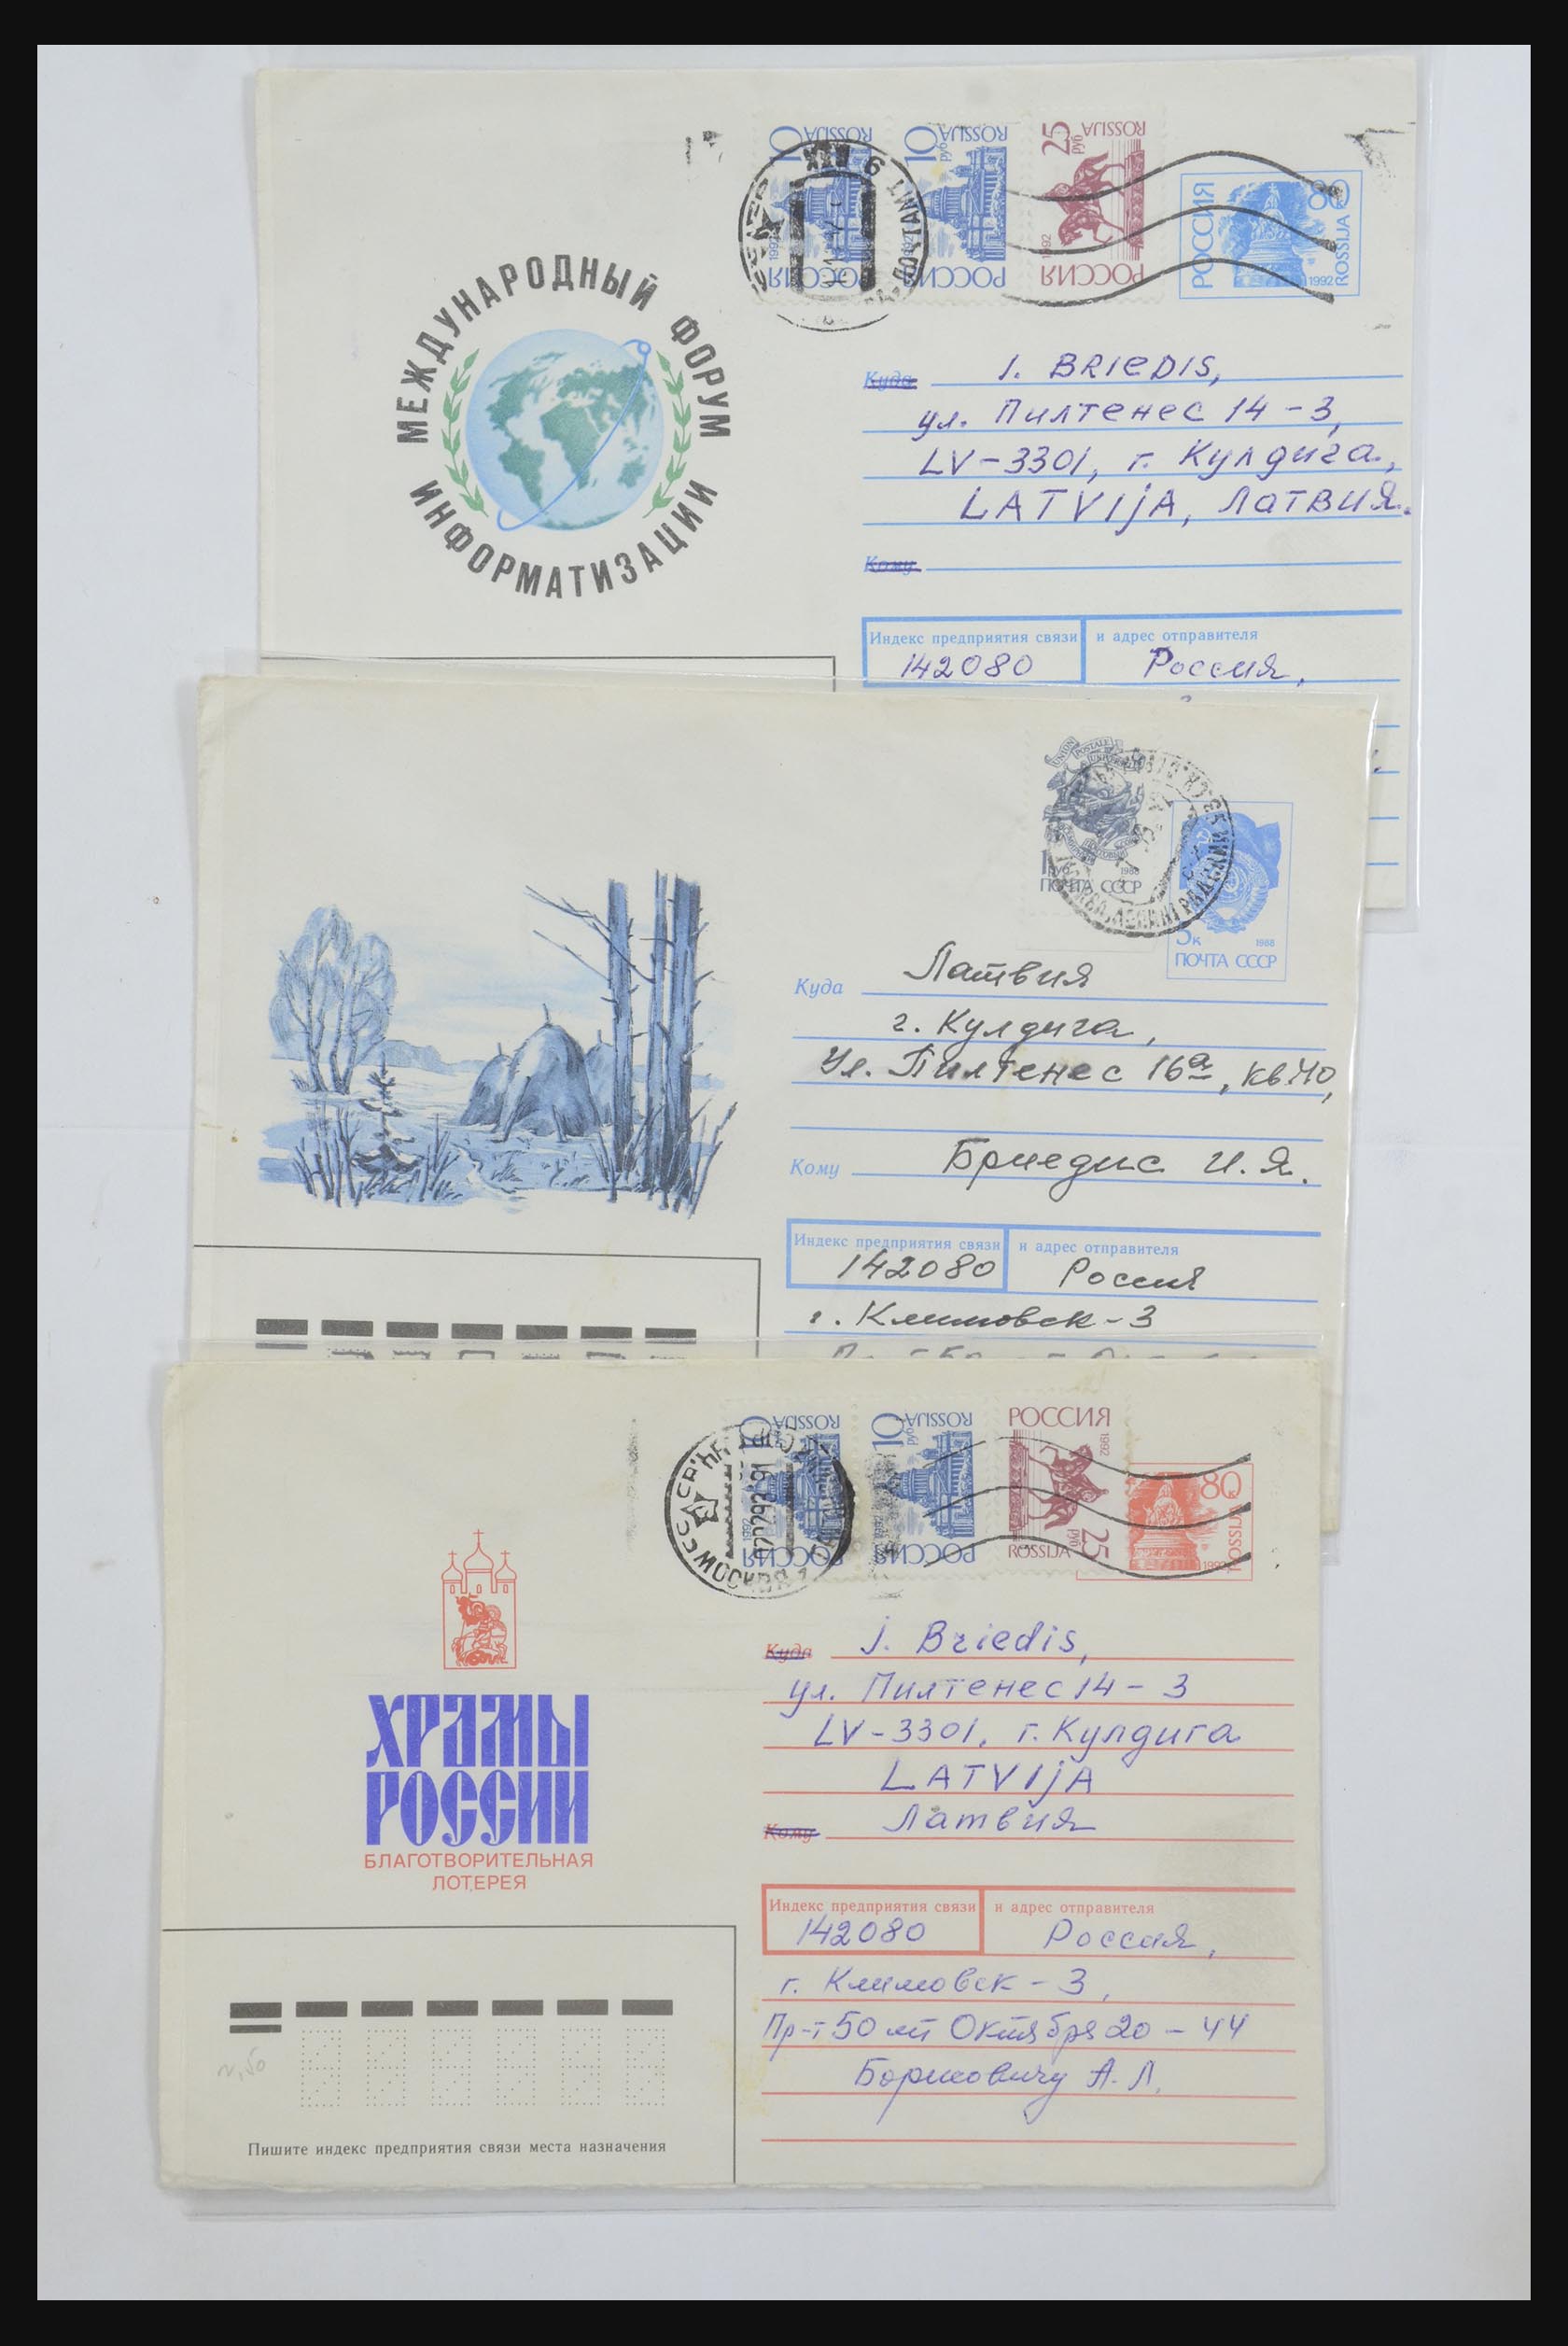 10 руб ROSSIJA 1992 РОССИЯ
10 руб ROSSIJA 1992 РОССИЯ
25 руб ROSSIJA 1992 РОССИЯ
РОССИЯ 80 ROSSIJA 1992
МЕЖДУНАРОДНЫЙ ФОРУМ
ИНФОРМАТИЗАЦИИ
Куда I. BRIEDIS,
ул. Пилтенес 14-3,
LV-3301, г. Кулдига,
LATVIJA, Латвия.
Кому
Индекс предприятия связи и адрес отправителя
142080 Россия,
UNION POSTALE
1 руб 1988
ПОЧТА СССР
5к 1988
ПОЧТА СССР
Куда Латвия
г. Кулдига,
Ул. Пилтенес 16а, кв. 40,
Кому Бриедис И.Я.
Индекс предприятия связи и адрес отправителя
142080 Россия
г. Климовск-3
10 ROSSIJA 1992 РОССИЯ
10 руб ROSSIJA 1992 РОССИЯ
РОССИЯ 1992 25 руб ROSSIJA
80 к ROSSIJA 1992
МОСКВА
ХРАМЫ
РОССИИ
БЛАГОТВОРИТЕЛЬНАЯ
ЛОТЕРЕЯ
Куда J. Briedis,
ул. Пилтенес 14-3
LV-3301, г. Кулдига
LATVIJA
Кому Латвия
Индекс предприятия связи и адрес отправителя
142080 Россия,
г. Климовск-3,
Пр-т 50 лет Октября 20-44
А.Л.
Пишите индекс предприятия связи места назначения